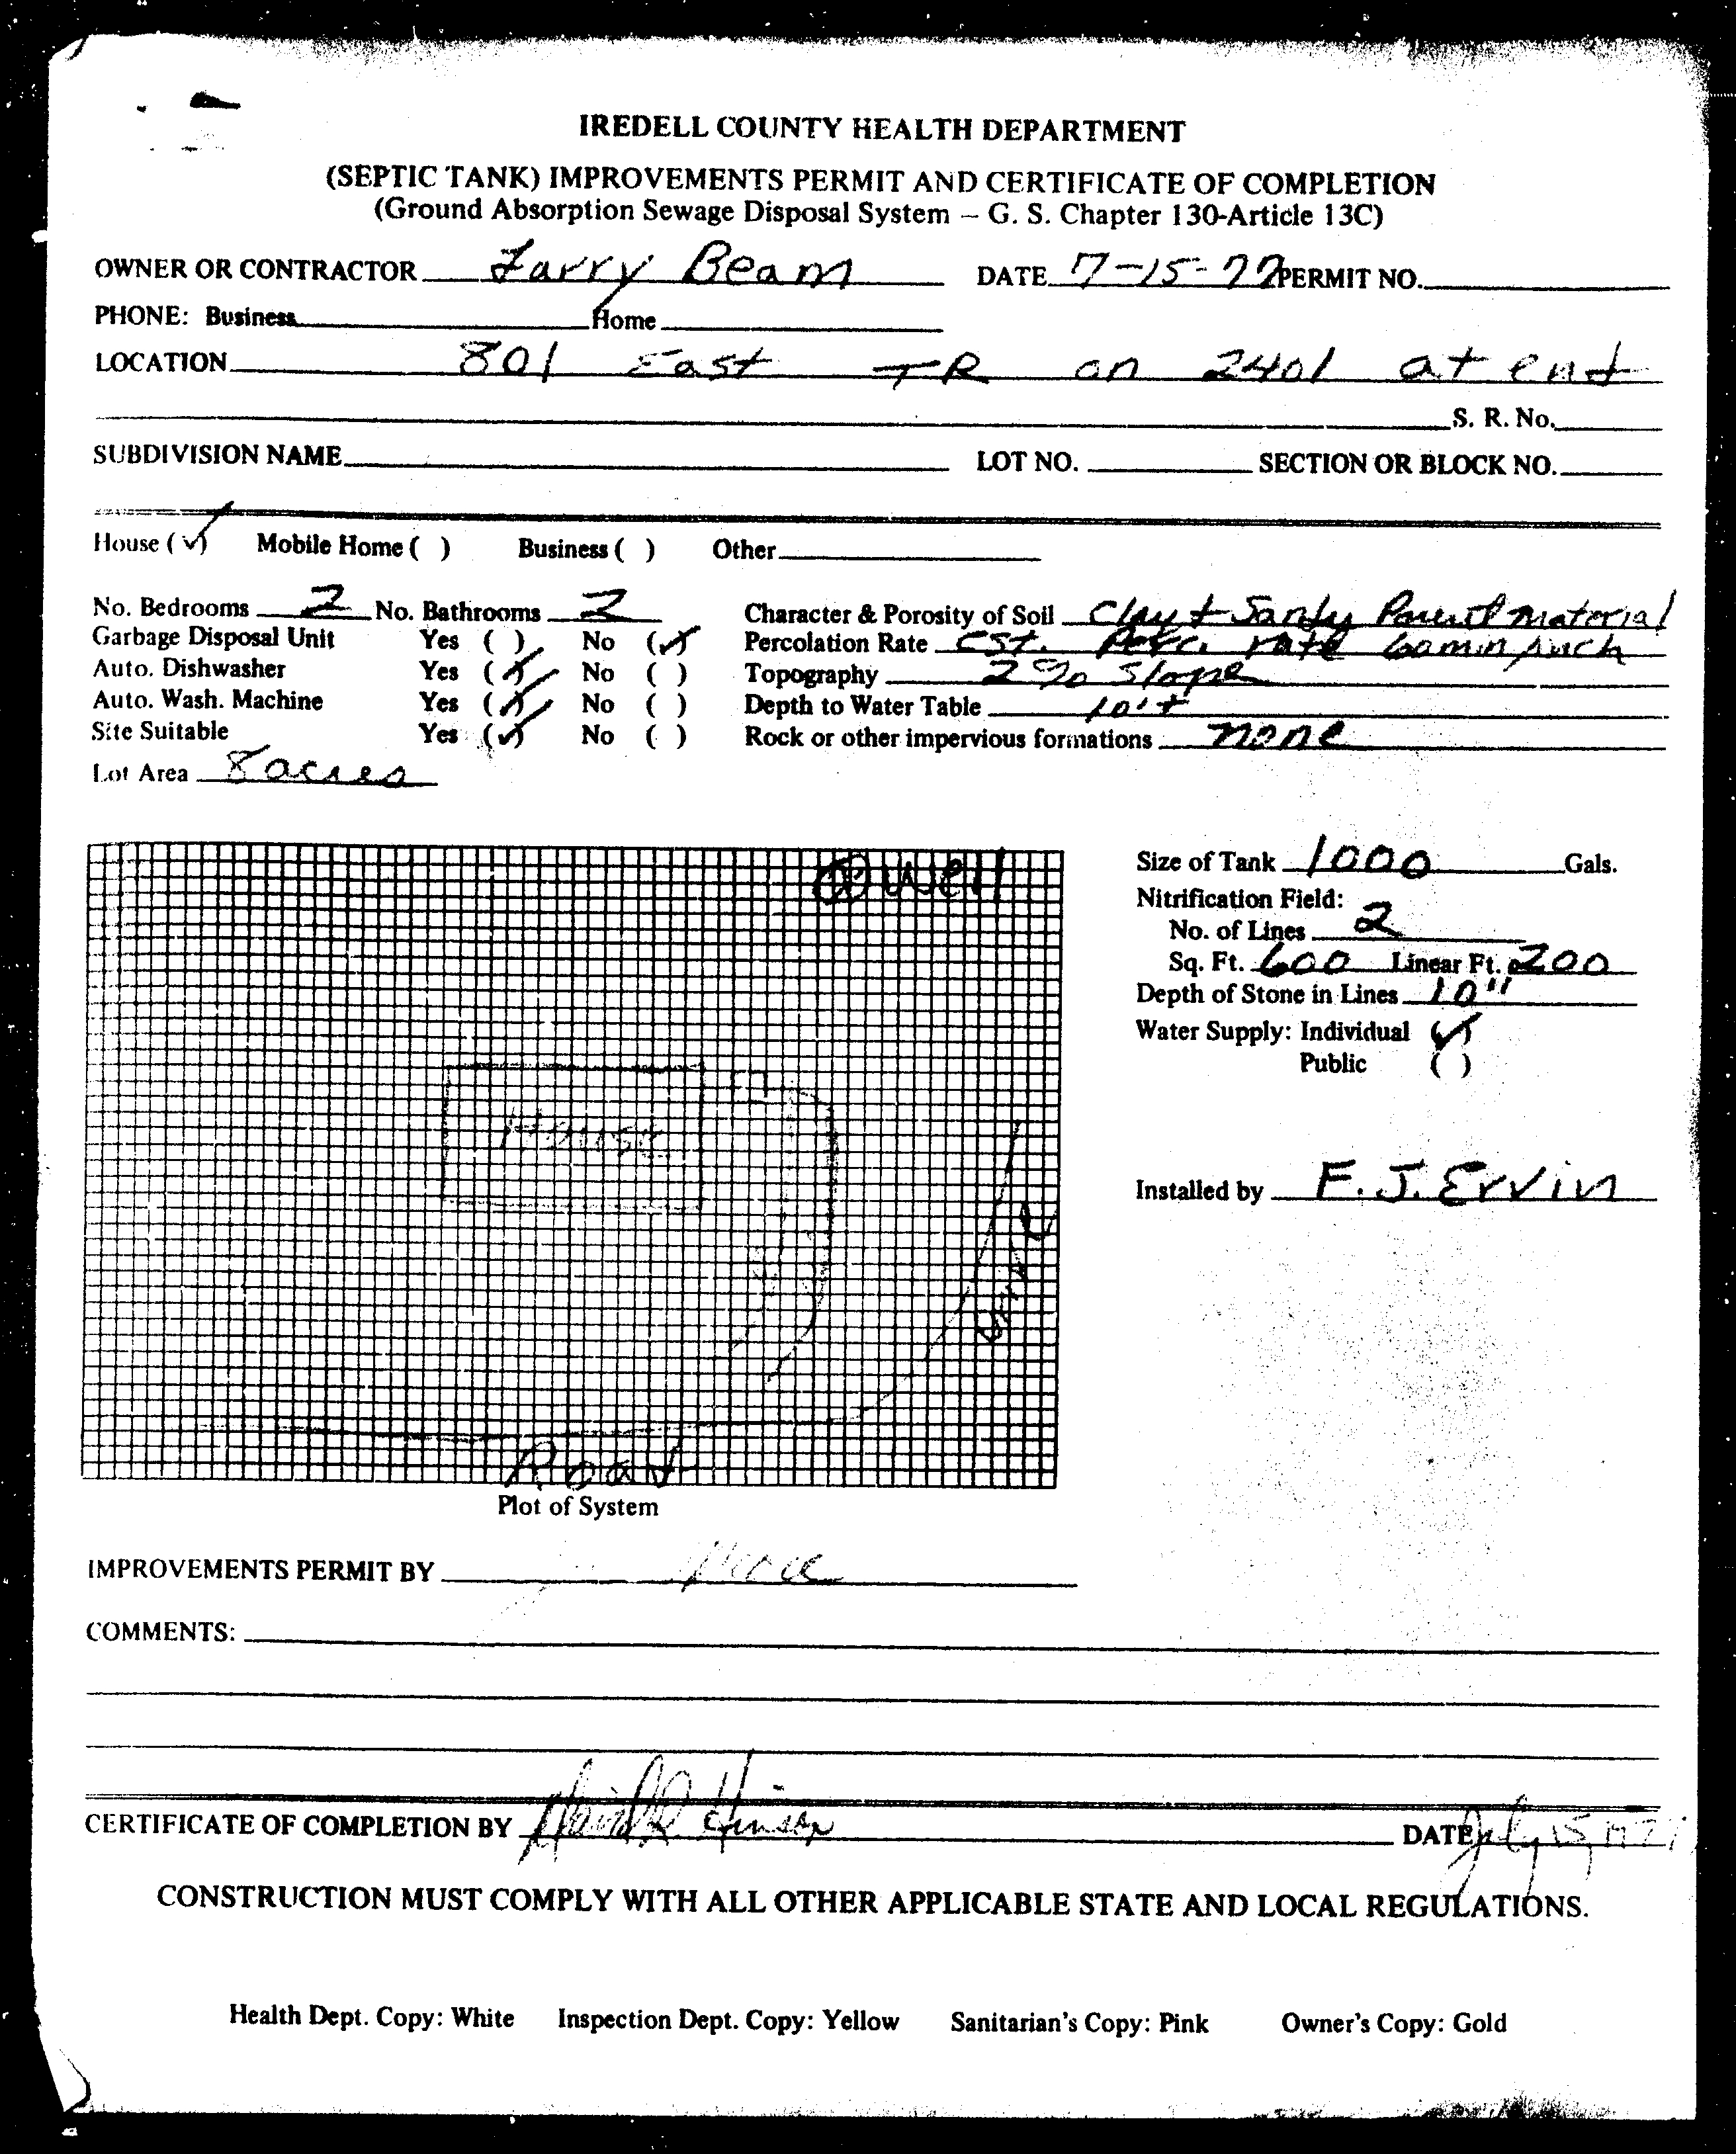 IREDELL COUNTY HEALTH DEPARTMENT
(SEPTIC TANK) IMPROVEMENTS PERMIT AND CERTIFICATE OF COMPLETION
(Ground Absorption Sewage Disposal System – G. S. Chapter 130-Article 13C)
OWNER OR CONTRACTOR Larry Beam DATE 7-15-77 PERMIT NO.
PHONE: Business Home
LOCATION 801 East TR on 2401 at end
S. R. No.
SUBDIVISION NAME LOT NO. SECTION OR BLOCK NO.
House (✓) Mobile Home ( ) Business ( ) Other
No. Bedrooms 2 No. Bathrooms 2 Character & Porosity of Soil Clay + Sandy Parent Material
Garbage Disposal Unit Yes ( ) No (✓) Percolation Rate Est. Perc. rate 60 min/inch
Auto. Dishwasher Yes (✓) No ( ) Topography 2% Slope
Auto. Wash. Machine Yes (✓) No ( ) Depth to Water Table 10'+
Site Suitable Yes (✓) No ( ) Rock or other impervious formations none
Lot Area 8 acres
Well
House
Drive
Road
Plot of System
Size of Tank 1000 Gals.
Nitrification Field:
No. of Lines 2
Sq. Ft. 600 Linear Ft. 200
Depth of Stone in Lines 10"
Water Supply: Individual (✓)
Public ( )
Installed by F. J. Ervin
IMPROVEMENTS PERMIT BY
COMMENTS:
CERTIFICATE OF COMPLETION BY David R. Hinson DATE July 15, 1977
CONSTRUCTION MUST COMPLY WITH ALL OTHER APPLICABLE STATE AND LOCAL REGULATIONS.
Health Dept. Copy: White Inspection Dept. Copy: Yellow Sanitarian's Copy: Pink Owner's Copy: Gold